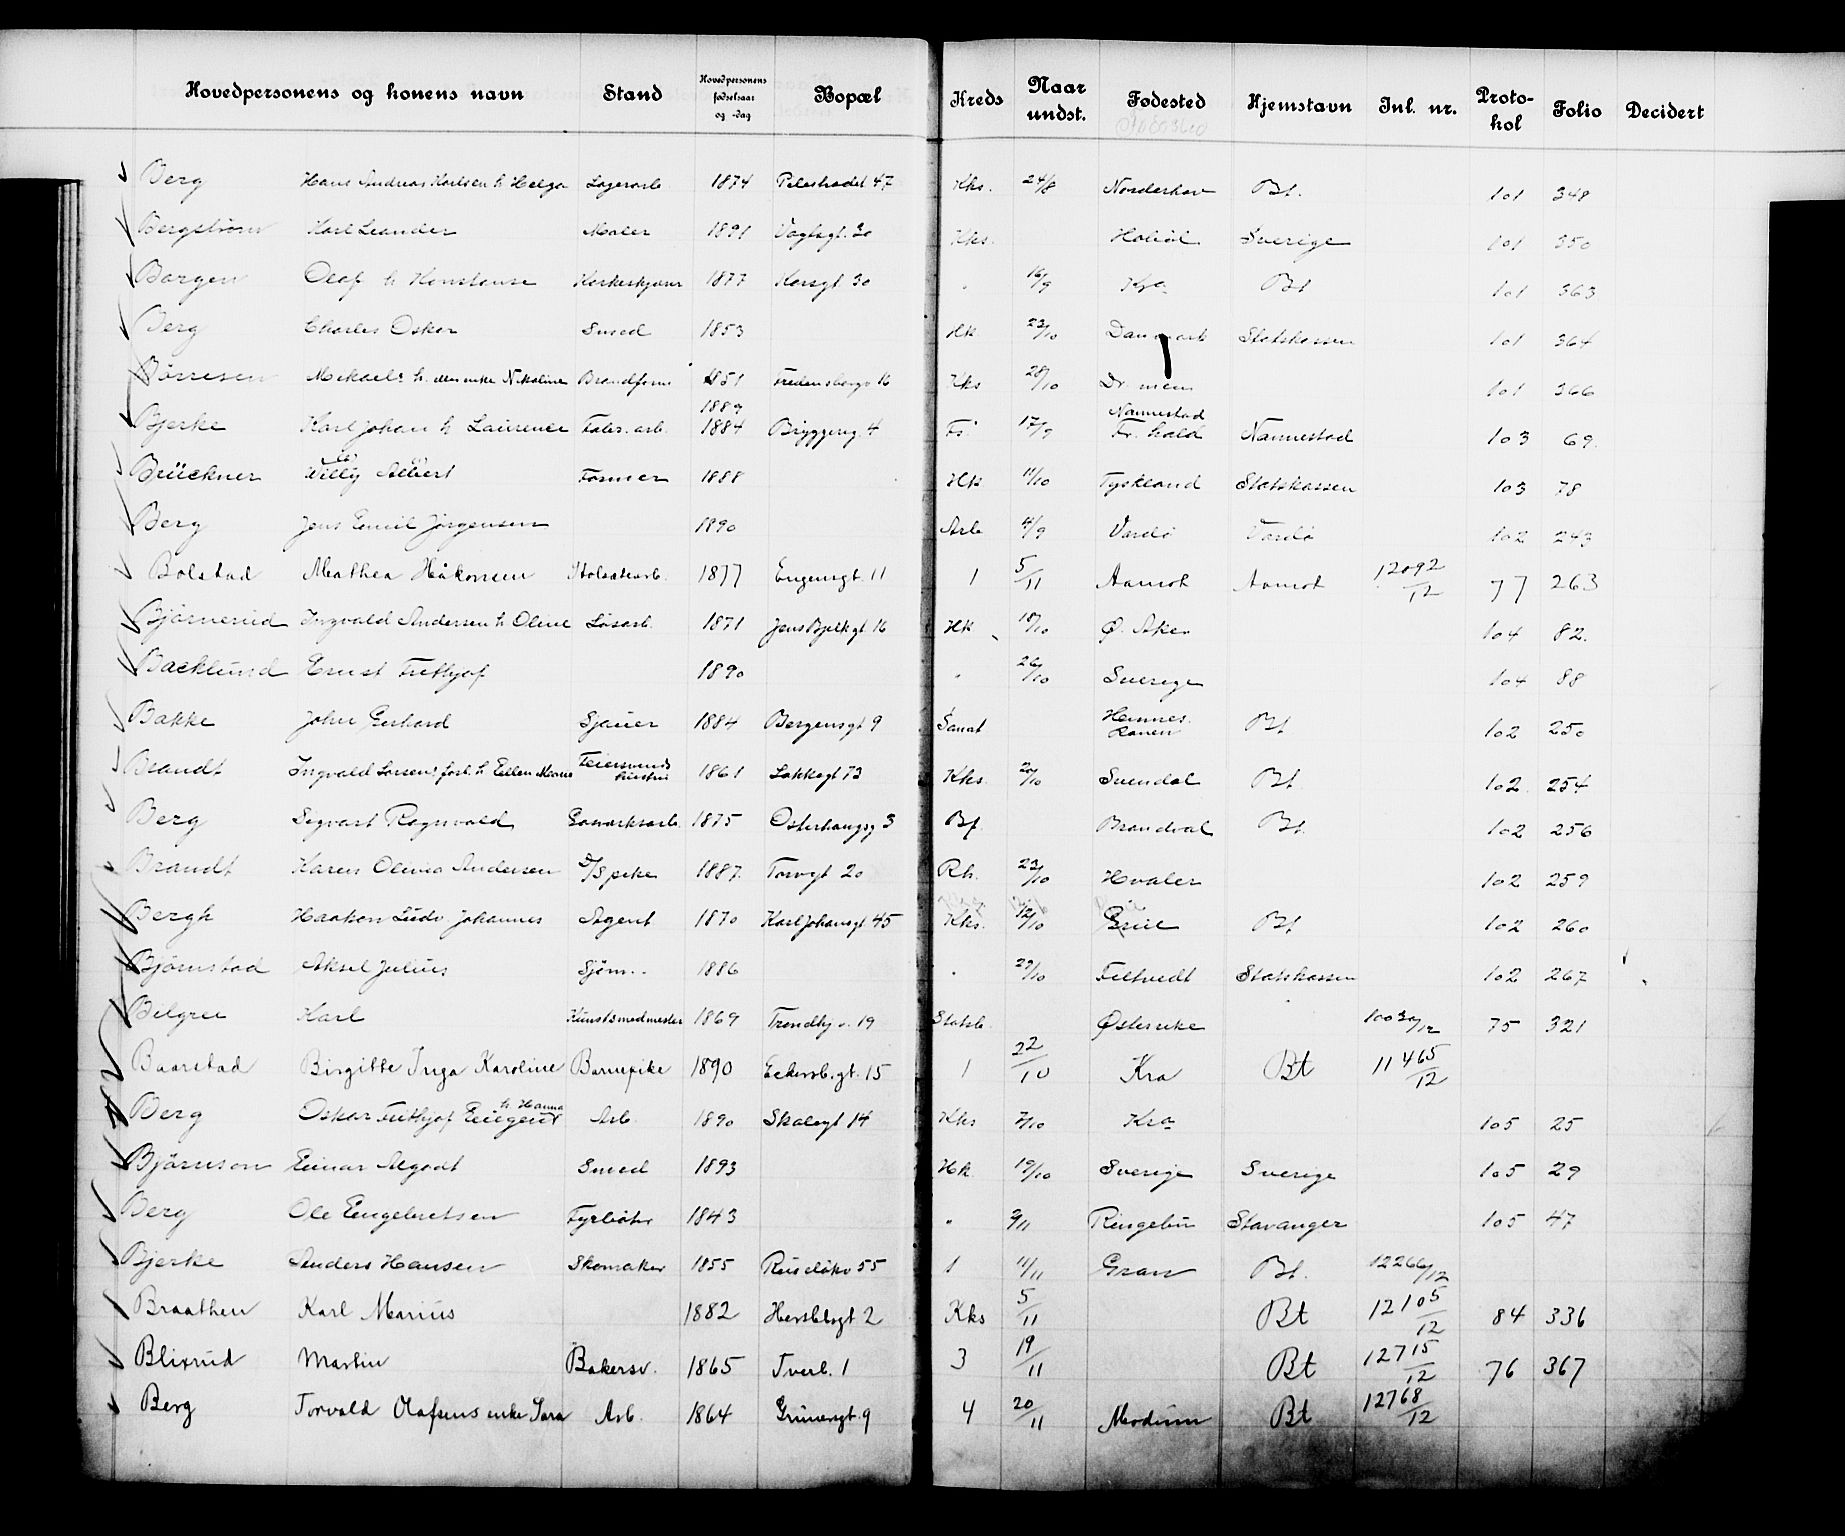 Hovedpersonens og konens navn Stand Hovedpersonens fødselsaar og -dag Bopæl Kreds Naar undst. Fødested Hjemstavn Inl. nr. Proto-kol Folio Decidert
Berg Hans Andreas Karlsen h Helga Lagerarb 1874 Pilestrædet 47 Kks. 24/8 Norderhov Bt. 101 348
Bergstrøm Karl Leander Maler 1891 Vogtsgt. 30 Kks. Sverige 101 350
Borgen Olaf h Konstanse 1877 Korsgt 30 " 16/9 Kra Bt 101 363
Berg Charles Oskar Smed 1853 Hk 23/10 Danmark Statskassen 101 364
Børresen Mikaels h. den enke Nikoline Brandform 1851 Fredensborgv 16 Kks 28/10 Dr.men 101 366
Bjerke Karl Johan h Laurence Fabr. arb. 1889 1884 Bryggerig. 4 Fs. 17/9 Nannestad Fr. hald Nannestad 103 69.
Brückner Willy Albert Former 1888 Hk 11/10 Tyskland Statskassen 103 78
Berg Jens Emil Jørgensen 1890 Arb 4/9 Vardø Vardø 102 243
Bolstad Mathea Håkonsen 1877 Eugensgt. 11 1 5/11 Aamot Aamot 12092/12 77 263
Bjørnerud Ingvald Andersen h Oline Løsarb. 1871 Jens Bjelkgt 16 Hk 18/10 Ø. Aker 104 82.
Backlund Ernst Frithjof 1890 " 26/10 Sverige 104 88
Bakke Johan Gerhard Sjauer 1884 Bergensgt 9 Sanat Hemnes Ranen Bt 102 250
Brandt Ingvald Larsens forl. h Ellen Marie Feiersvends hustru 1861 Lakkegt 73 Kks. 20/10 Svendal Bt. 102. 254
Berg Sigvart Ragnvald Gasverksarb. 1875 Osterhausg 3 Bf. Brandval Bt. 102 256
Brandt Karen Olivia Andersen D/Spike 1887. Torvgt 20 Rh. 23/10 Hvaler 102 259
Bergh Haakon Ludv Johannes Agent 1870 Karl Johansgt 45 Kks. 12/10 Bt 102 260
Bjørnstad Aksel Julius Sjøm. 1886 " 29/10 Filtvedt Statskassen 102 267
Bilgrei Karl Kunstsmedmester 1869 Trondhj v. 19 Statsb. Østerrike 10030/12 75 321
Baarstad Birgitte Inga Karoline Barnepike 1890 Eckersb.gt. 15 1 22/10 Kra Bt 11465/12
Berg Oskar Frithjof Eugen h Hanna Arb. 1890 Skalegt 14 Kks 7/10 Kra 105 25
Bjørnson Einar Algodt Smed 1893 Hk. 19/10 Sverige Sverige 105 29
Berg Ole Engebretsen Fyrbøter 1843 " 2/11 Ringebu Stavanger 105 47
Bjerke Anders Hansen Skomaker 1855 Ruseløkv 55 1 11/11 Gran Bt. 12266/12
Braathen Karl Marius 1882 Herslebsgt 2 Kks 5/11 Bt 12105/12 84 336
Blixrud Martin Bakersv. 1865 Tverb. 1 3 19/11 Bt 12715/12 76 367
Berg Torvald Olafsens enke Sara Arb. 1864 Grünersgt. 9 4 20/11 Modum Bt 12768/12